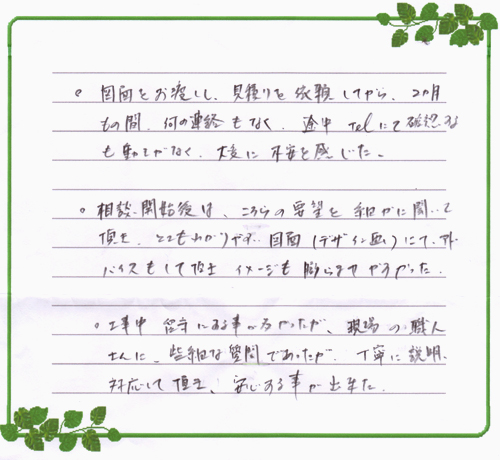 。図面をお渡しし、見積りを依頼してから、2ヵ月
もの間、何の連絡もなく、途中 Telにて確認する
も動きがなく、大変に不安を感じた。
。相談開始後は、こちらの要望を細かに聞いて
頂き、とてもわかりやすい図面(デザイン画)にて、アド
バイスもして頂き イメージも膨らませやすかった。
。工事中 留守にする事が多かったが、現場の職人
さんに、些細な質問であったが、丁寧に説明、
対応して頂き、安心する事が出来た。